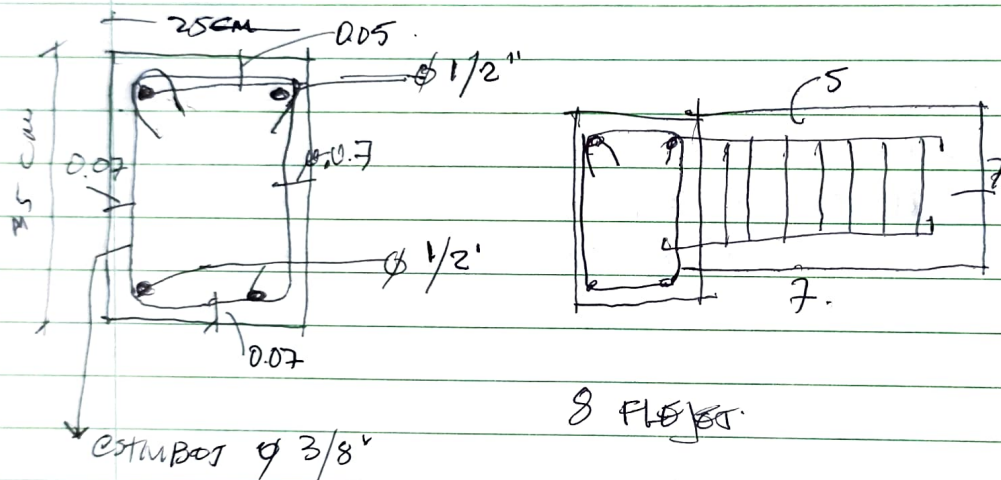 25CM
0.05
Ø 1/2"
35 CM
0.07
0.07
Ø 1/2'
0.07
ESTRIBOS Ø 3/8"
5
7
7.
8 FLEJES.